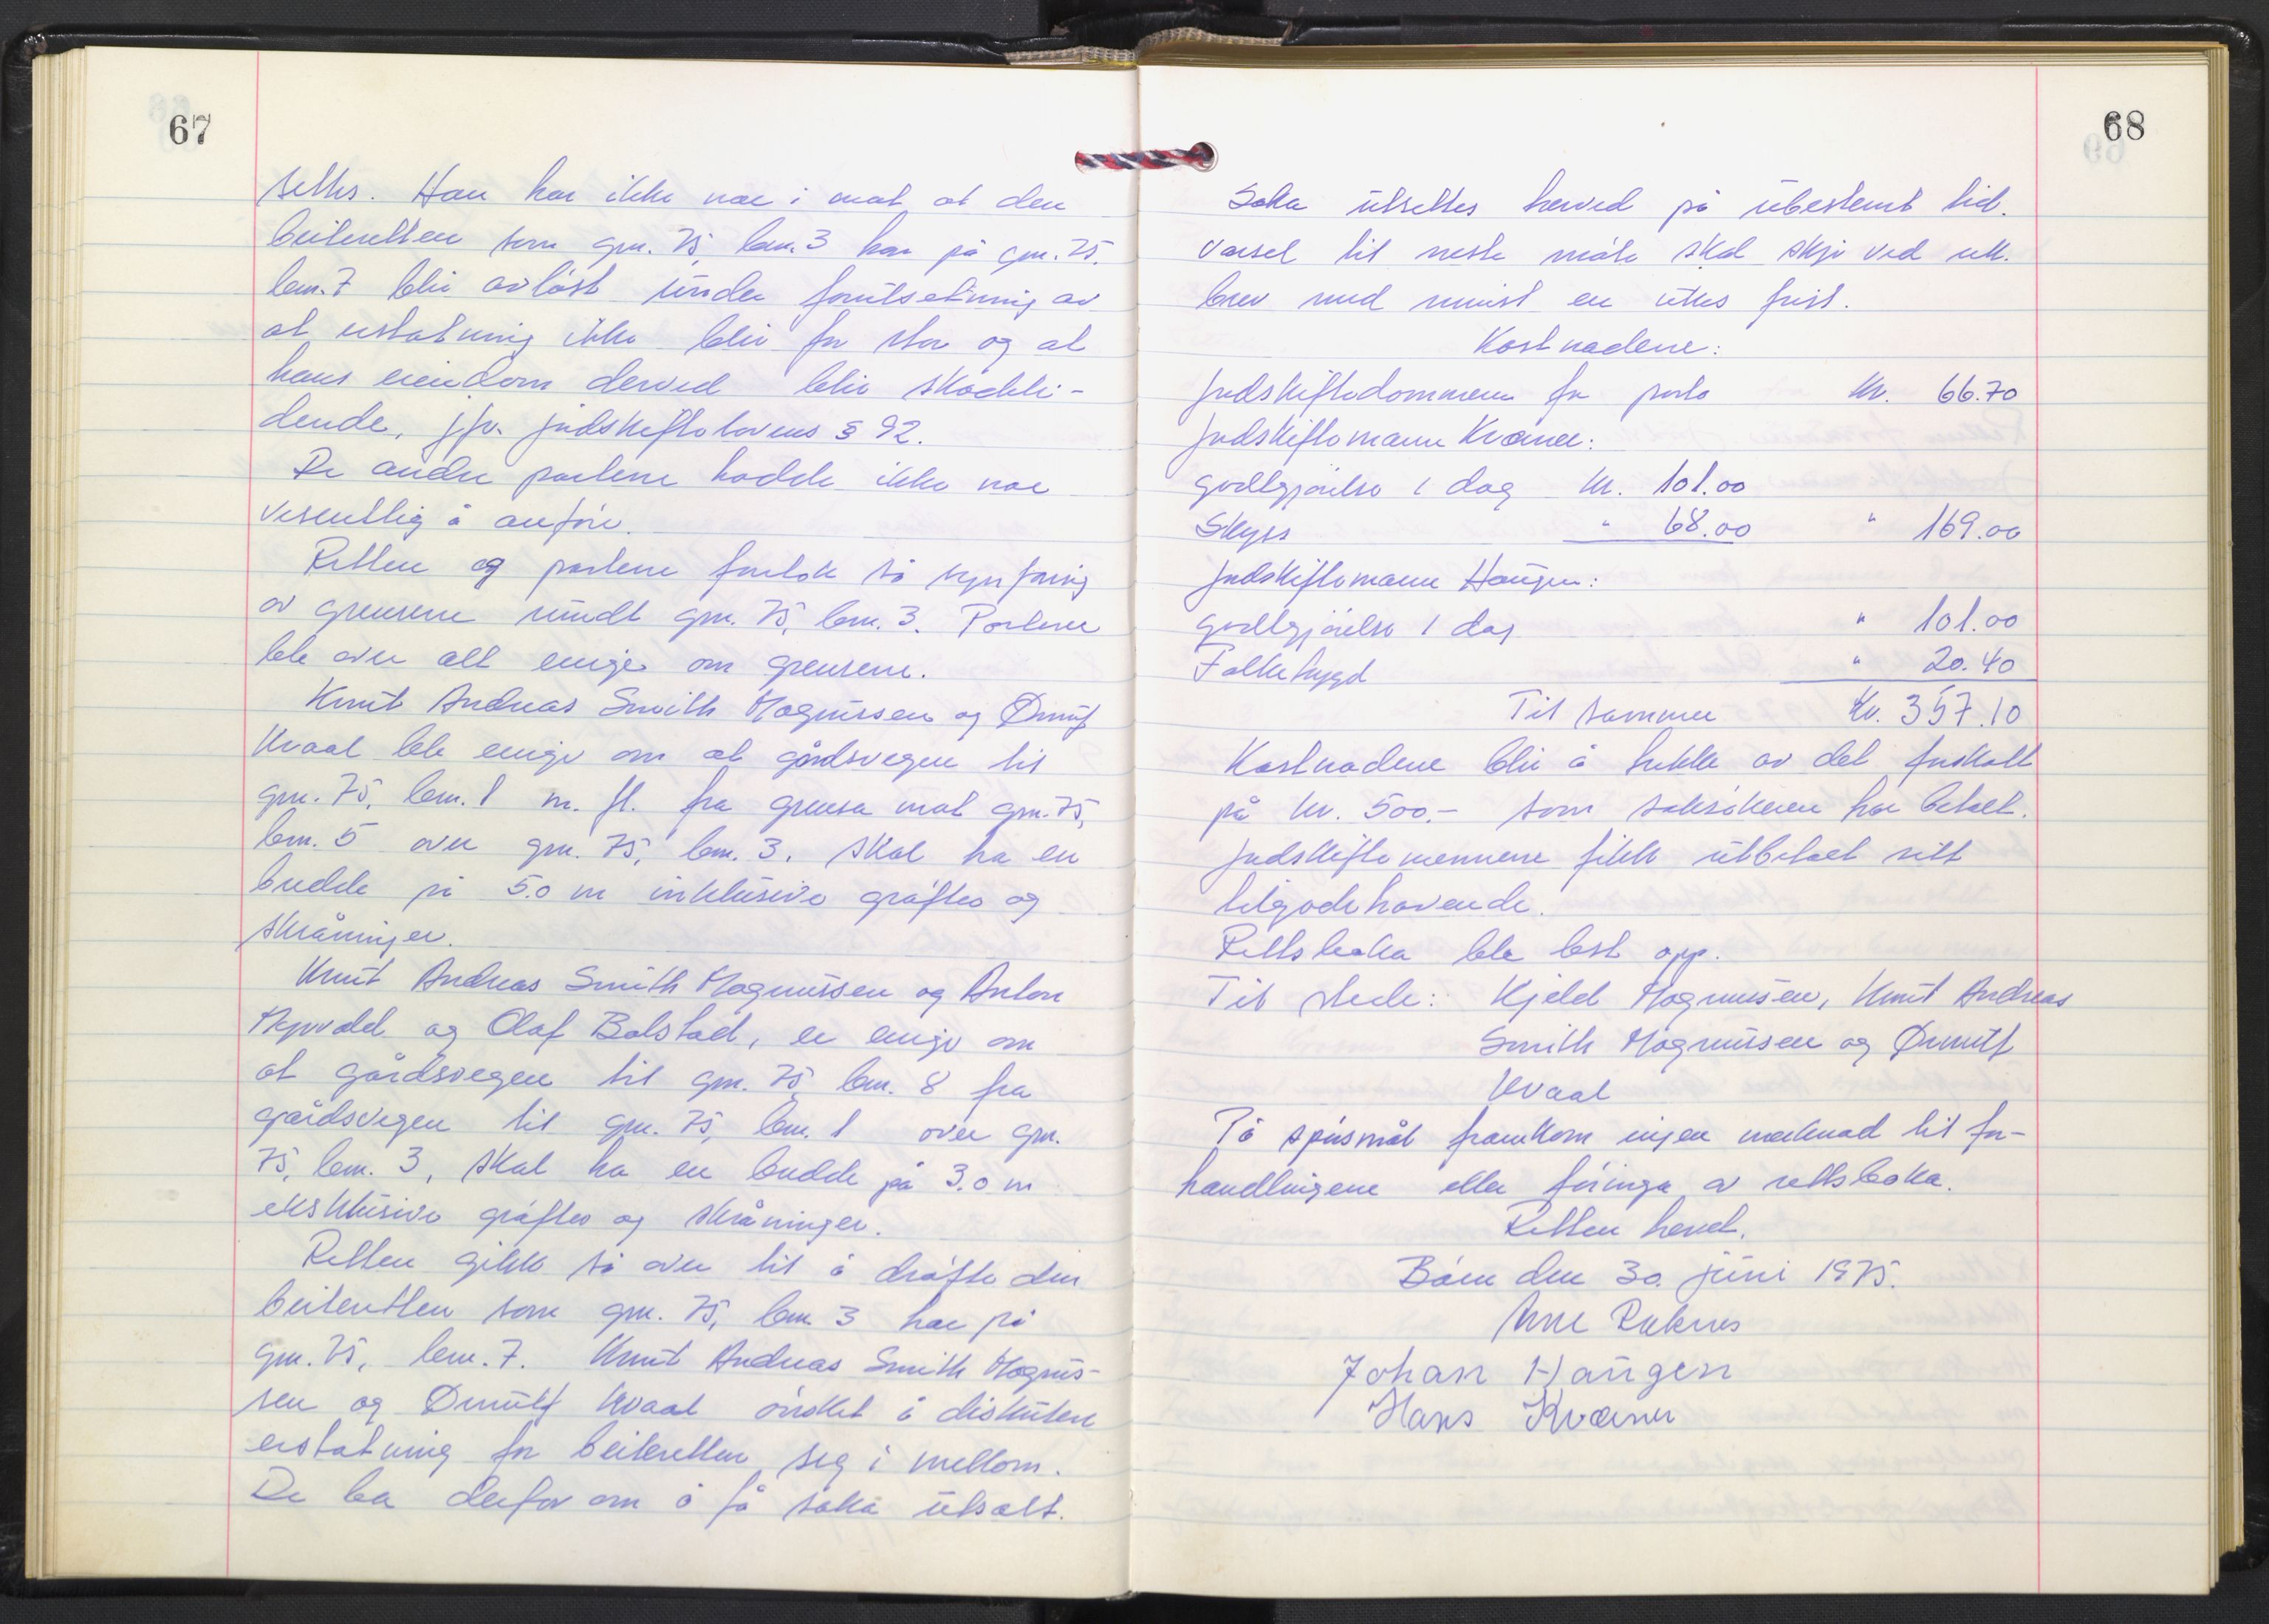 67
settes. Han har ikke noe i mot at den
beiteretten som gnr. 75, bnr. 3 har på gnr. 75,
bnr. 7 blir avløst under forutsetning av
at erstatning ikke blir for stor og at
hans eiendom derved blir skadeli-
dende, jfr. jordskiftelovens § 92.
De andre partene hadde ikke noe
vesentlig å anføre.
Retten og partene foretok så synfaring
av grensene rundt gnr. 75, bnr. 3. Partene
ble over alt enige om grensene.
Knut Andreas Smith Magnussen og Ørnulf
Kvaal ble enige om at gårdsvegen til
gnr. 75, bnr. 1 m. fl. fra grensa mot gnr. 75,
bnr. 5 over gnr. 75, bnr. 3, skal ha en
bredde på 5.0 m inklusive grøfter og
skråninger.
Knut Andreas Smith Magnussen og Anton
og Olaf Bolstad, er enige om
at gårdsvegen til gnr. 75 bnr. 8 fra
gårdsvegen til gnr. 75, bnr. 1 over gnr.
75, bnr. 3, skal ha en bredde på 3.0 m
eksklusive grøfter og skråninger.
Retten gikk så over til å drøfte den
beiteretten som gnr. 75, bnr. 3 har på
gnr. 75, bnr. 7. Knut Andreas Smith Magnus-
sen og Ørnulf Kvaal ønsket å diskutere
erstatning for beiteretten seg i mellom.
De ba derfor om å få saka utsatt.
68
Saka utsettes herved på ubestemt tid.
Varsel til neste møte skal skje ved rek.
brev med minst en ukes frist.
Kostnadene:
Jordskiftedommeren for porto kr. 66.70
Jordskiftemann Kværner:
godtgjørelse 1 dag kr. 101.00
Skyss " 68.00 " 169.00
Jordskiftemann Haugen:
godtgjørelse 1 dag " 101.00
Folketrygd " 20.40
Til sammen Kr. 357.10
Kostnadene blir å trekke av det forskott
på kr. 500.- som saksøkeren har betalt.
Jordskiftemennene fikk utbetalt sitt
tilgodehavende.
Rettsboka ble lest opp.
Til stede: Kjeld Magnussen, Knut Andreas
Smith Magnussen og Ørnulf
Kvaal
På spørsmål framkom ingen merknad til for-
handlingene eller føringa av rettsboka.
Retten hevet.
Båen den 30. juni 1975.
Arne Reknes
Johan Haugen
Hans Kværner